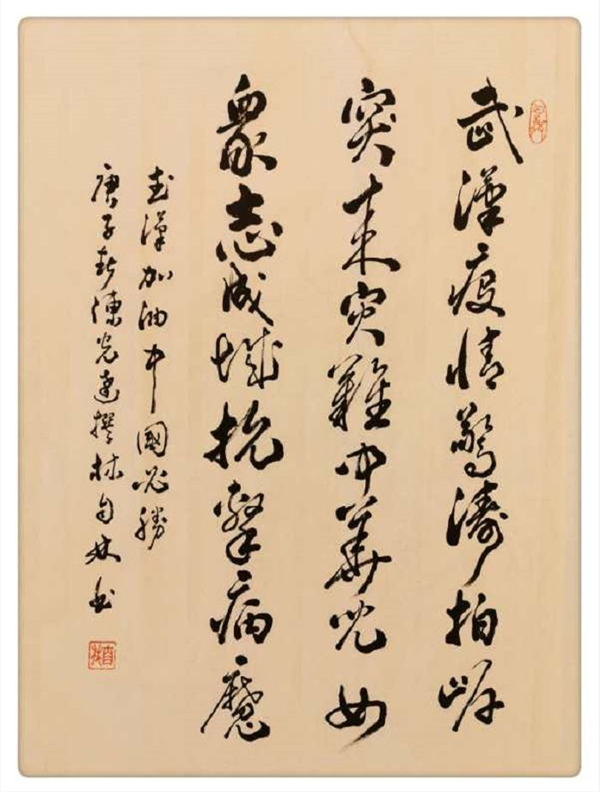 武漢疫情驚濤拍岸
突来灾難中華兒女
衆志成城抗擊病魔
武漢加油中國必勝
庚子新陳光達撰林自妹书